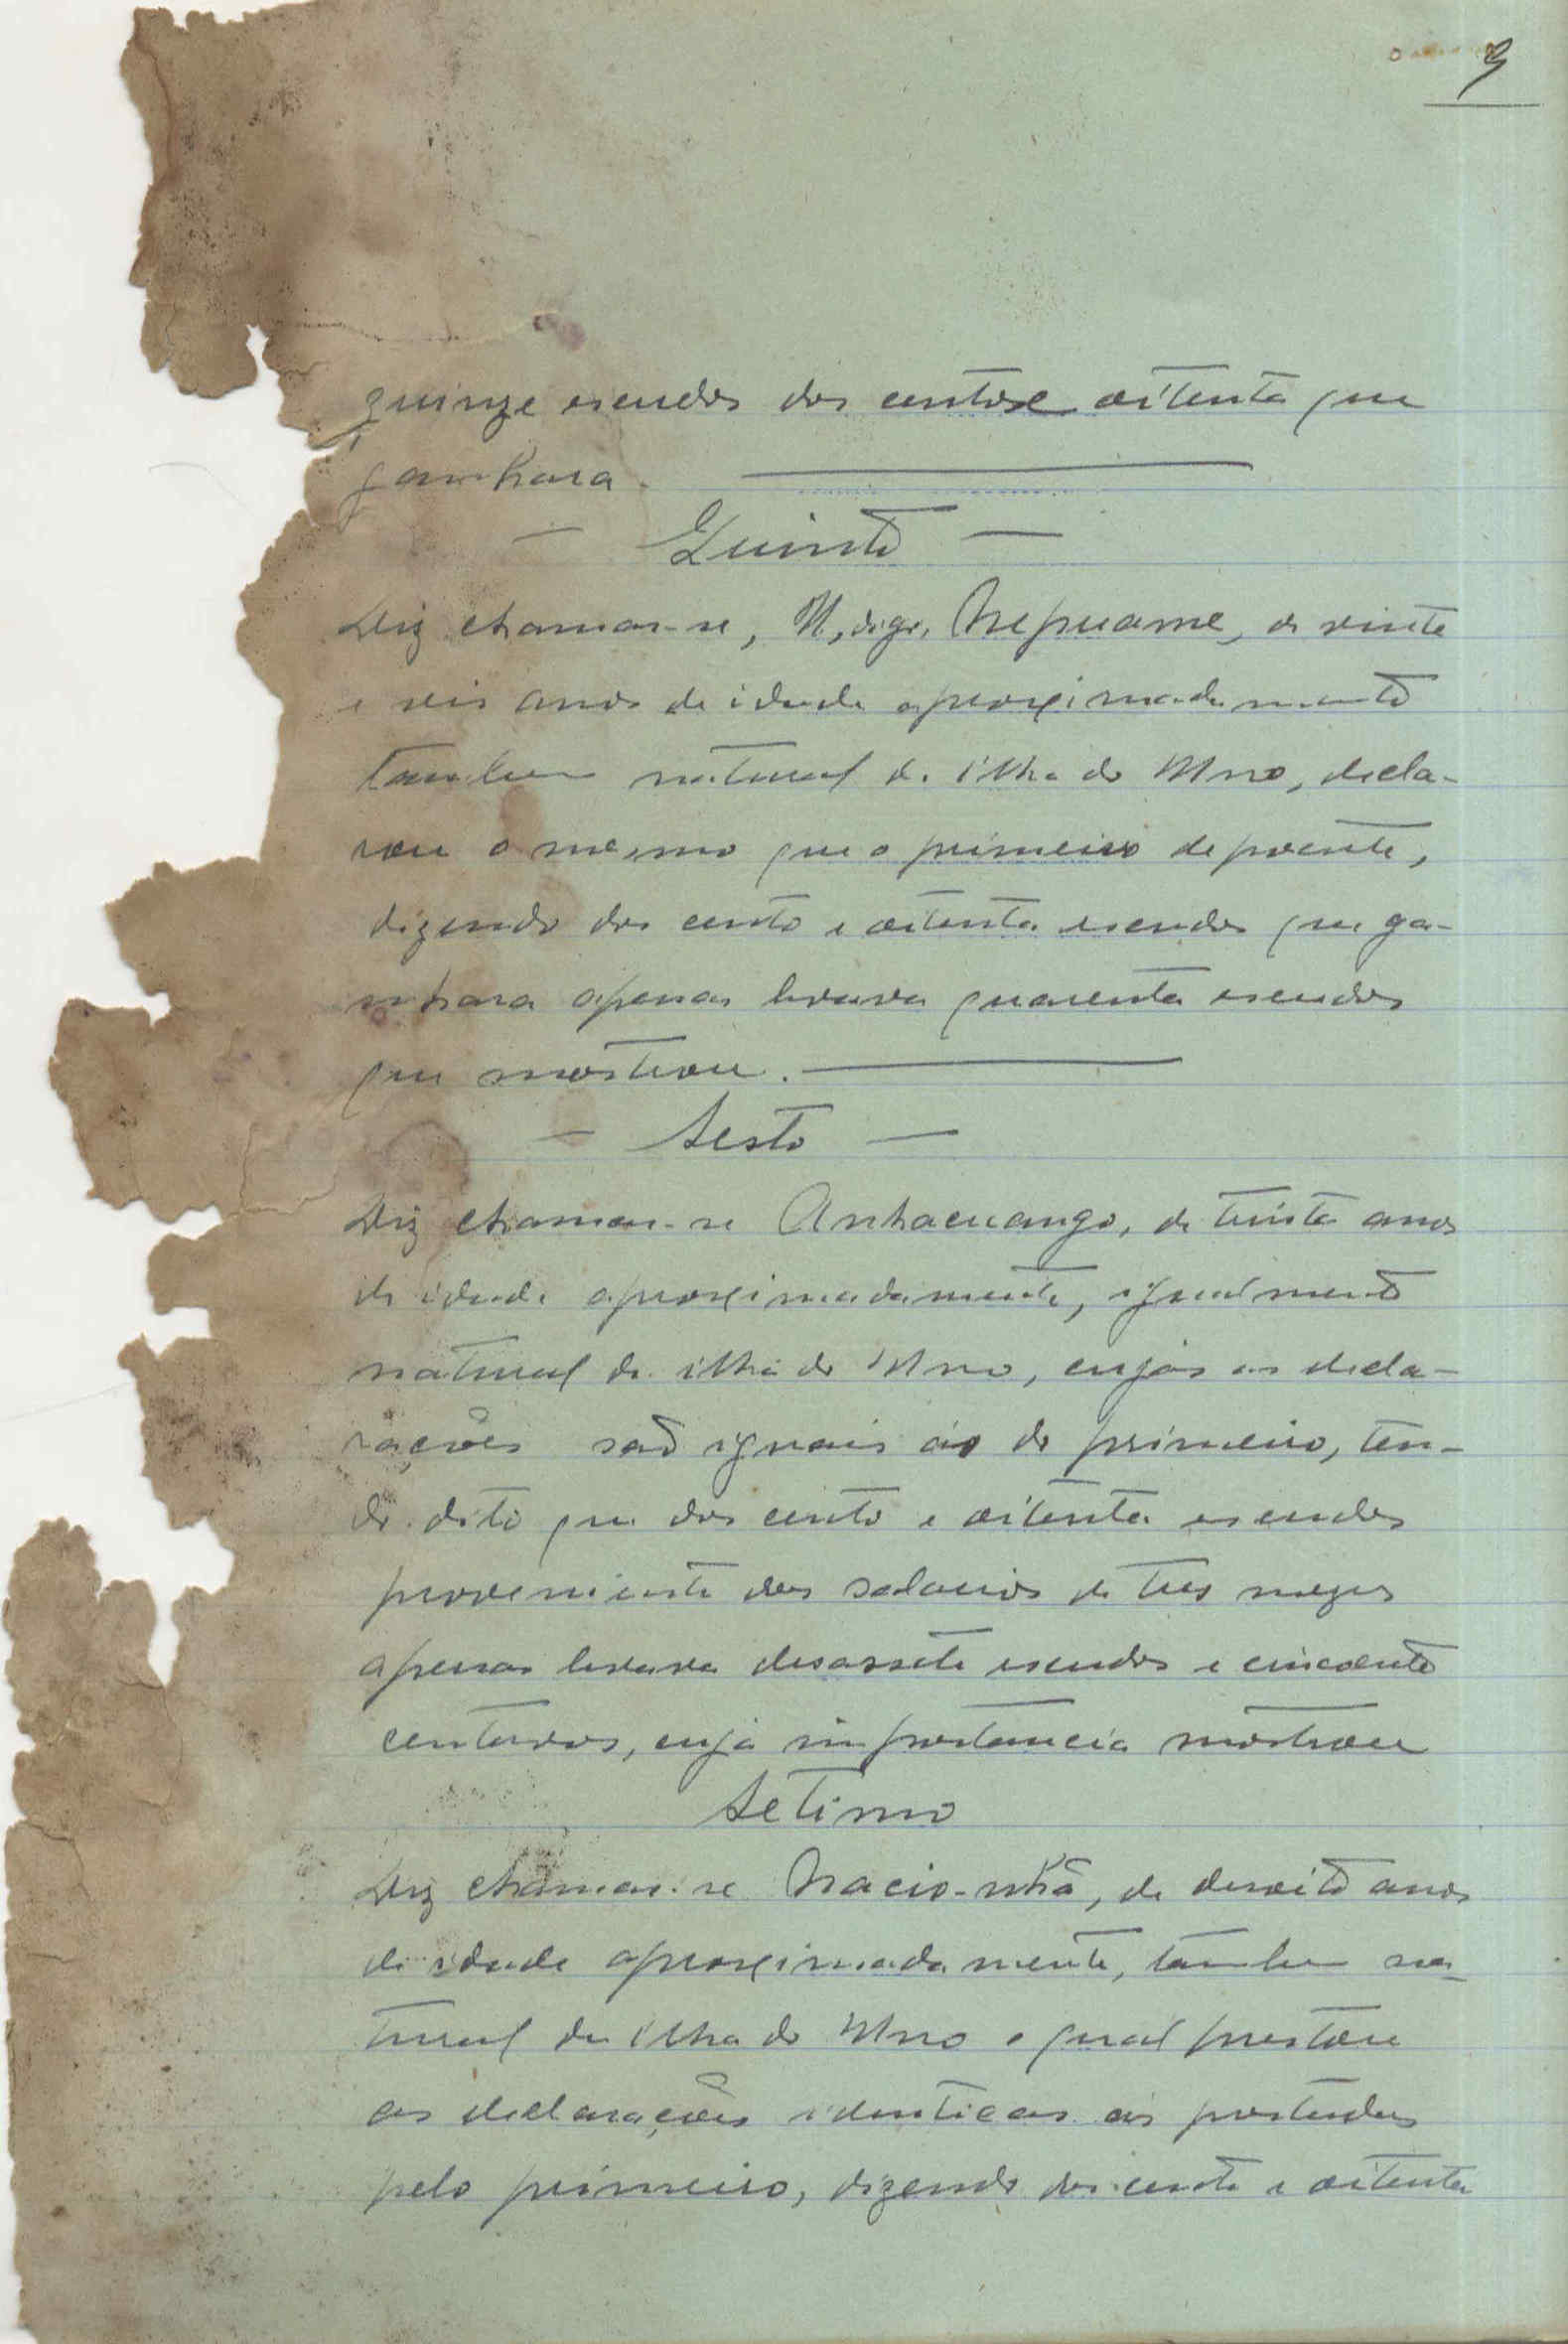 9
quinze escudos dos cento e oitenta que
ganhara.
— Quinto —
Diz chamar-se, N, digo, Nepuame, de vinte
e seis anos de idade aproximadamente
tambem natural da ilha do Uno, decla-
rou o mesmo que o primeiro depoente,
dizendo dos cento e oitenta escudos que ga-
nhara apenas levava quarenta escudos
que mostrou.
— Sesto —
Diz chamar-se Anhacuango, de trinta anos
de idade aproximadamente, igualmente
natural da ilha do Uno, cujas as decla-
rações são iguais ás do primeiro, ten-
do dito que dos cento e oitenta escudos
proveniente dos salarios de tres mezes
apenas levava desassete escudos e cincoenta
centavos, cuja importancia mostrou
Setimo
Diz chamar-se Nacio-nhã, de desoito anos
de idade aproximadamente, tambem na-
tural da ilha do Uno o qual prestou
as declarações identicas ás prestadas
pelo primeiro, dizendo dos cento e oitenta